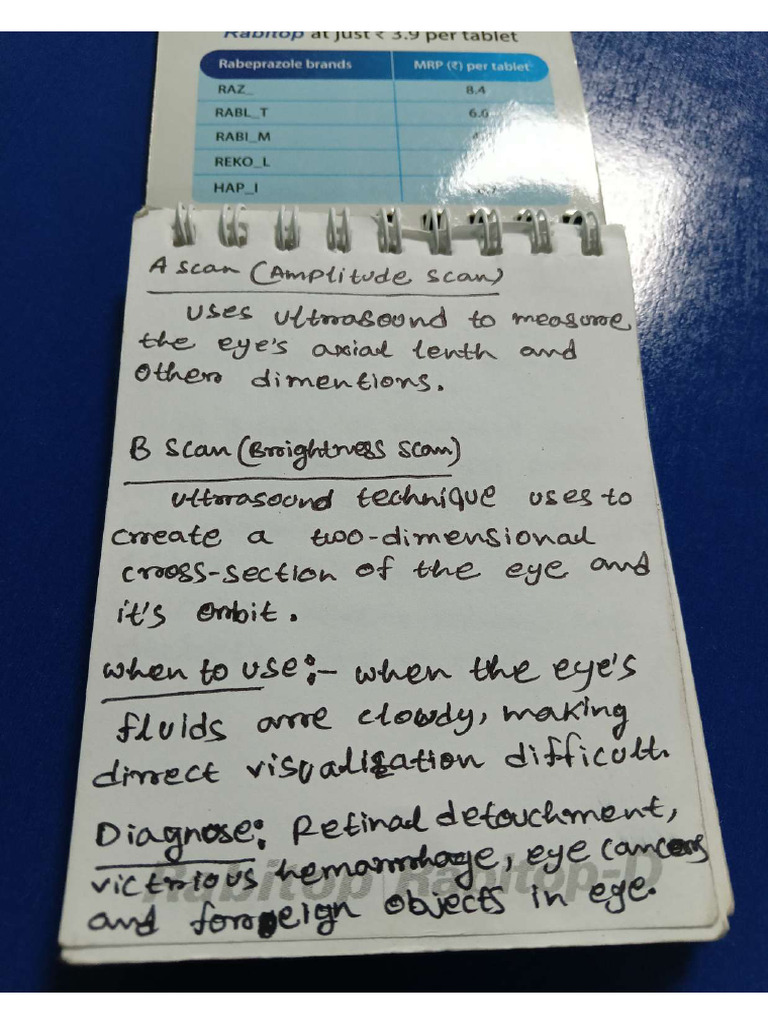 Rabitop at just ₹ 3.9 per tablet
Rabeprazole brands MRP (₹) per tablet
RAZ_ 8.4
RABL_T 6.6
RABI_M
REKO_L
HAP_I
A scan (Amplitude scan)
uses ultrrasound to measure
the eye's axial lenth and
other dimentions.
B scan (Brightness scan)
ultrrasound technique uses to
create a two-dimensional
cross-section of the eye and
it's orbit.
when to use:- when the eye's
fluids are clowdy, making
direct visualization difficult.
Diagnose: Retinal detouchment,
victrious hemarrhage, eye cancers
and foreign objects in eye.
Rabitop Rabitop-D